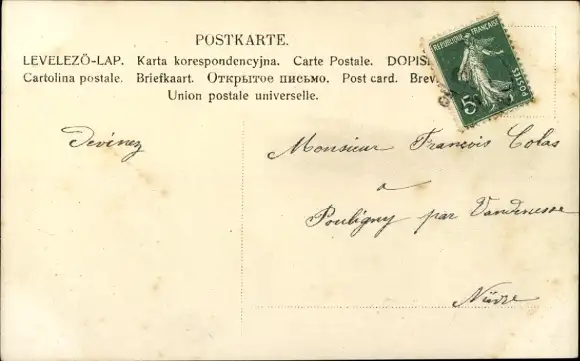 POSTKARTE.
LEVELEZŐ-LAP. Karta korespondencyjna. Carte Postale. DOPIS
Cartolina postale. Briefkaart. Открытое письмо. Post card. Brev
Union postale universelle.
REPUBLIQUE FRANÇAISE
POSTES
5
Devinez
Monsieur François Colas
a
Poubigny par Vandenesse
Nièvre